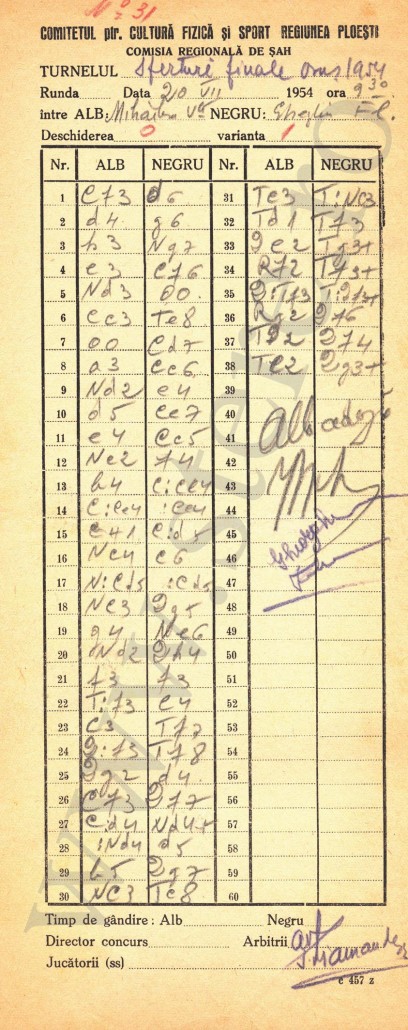 Nº 31
COMITETUL ptr. CULTURĂ FIZICĂ și SPORT REGIUNEA PLOEȘTI
COMISIA REGIONALĂ DE ȘAH
TURNELUL Sferturi finale 1954
Runda Data 20 VII 1954 ora 9 30
între ALB: NEGRU:
Deschiderea 0 varianta 1
Nr. ALB NEGRU Nr. ALB NEGRU
1 Cf3 d6 31 Te3 T:Ne3
2 d4 g6 32 Td1 Tf3
3 b3 Ng7 33 De2 Tg3+
4 e3 Cf6 34 Rf2 Tf3+
5 Nd3 00 35 D:Tf3
6 Cc3 Te8 36 Rg2 Df6
7 00 Cd7 37 Df4
8 a3 Cc6 38 Te2 Dg3+
9 Nd2 e4 39
10 d5 Ce7 40 Alb cedează
11 e4 Cc5 41
12 Ne2 f4 42
13 b4 C:Ce4 43
14 C:Ce4 :Ce4 44
15 C:d5 45
16 Nc4 c6 46
17 N:Cd5 :Cd5 47
18 Ne3 Dg5 48
19 g4 Ne6 49
20 Nd2 Dh4 50
21 f3 f3 51
22 T:f3 e4 52
23 C3 Tf7 53
24 D:f3 Tf8 54
25 Dg2 d4 55
26 Cf3 Df7 56
27 C:d4 Nd4+ 57
28 :Nd4 d5 58
29 b5 Dg7 59
30 Ne3 Te8 60
Timp de gândire: Alb Negru
Director concurs Arbitrii
Jucătorii (ss)
c 457 z